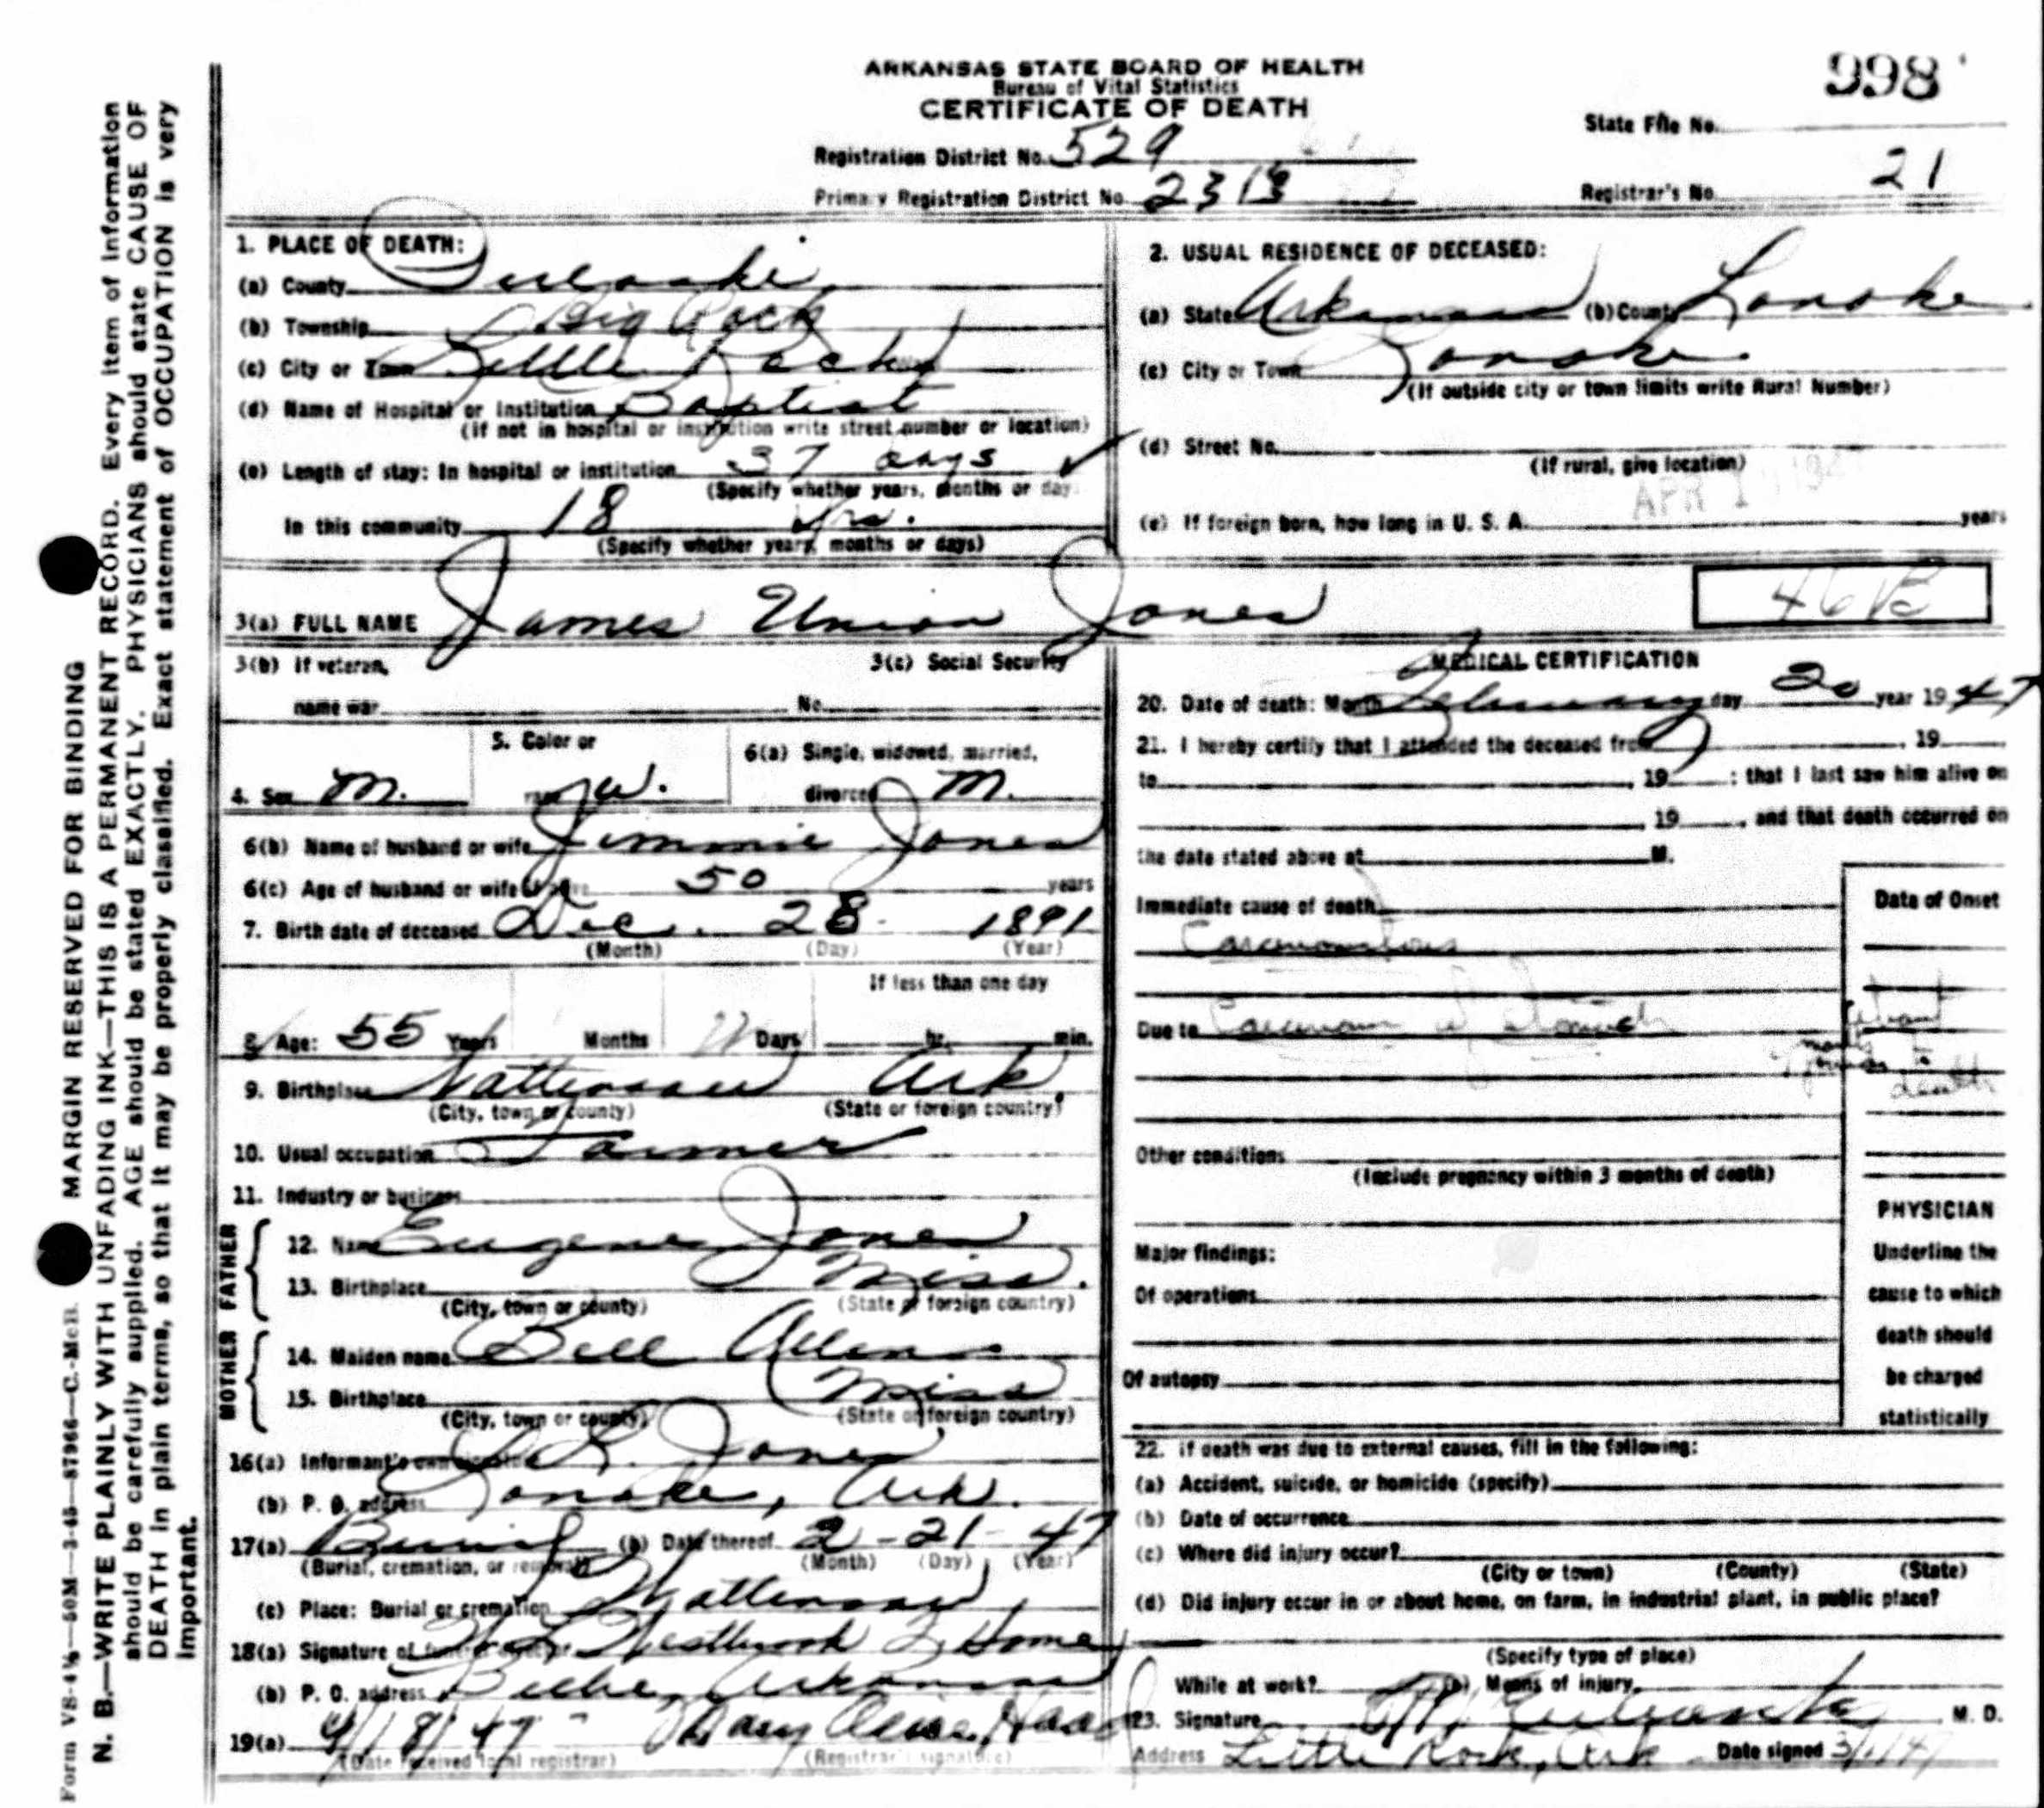 ARKANSAS STATE BOARD OF HEALTH
Bureau of Vital Statistics
CERTIFICATE OF DEATH
998
State File No.
Registration District No. 529
Primary Registration District No. 2313
Registrar's No. 21
1. PLACE OF DEATH:
(a) County Pulaski
(b) Township Big Rock
(c) City or Town Little Rock
(d) Name of Hospital or Institution Baptist
(If not in hospital or institution write street number or location)
(e) Length of stay: In hospital or institution 37 days
(Specify whether years, months or days
In this community 18 yrs.
(Specify whether years, months or days)
2. USUAL RESIDENCE OF DECEASED:
(a) State Arkansas (b) County Lonoke
(c) City or Town Lonoke
(If outside city or town limits write Rural Number)
(d) Street No.
(If rural, give location)
APR 1 194
(e) If foreign born, how long in U. S. A. years
3(a) FULL NAME James Union Jones
46B
3(b) If veteran,
name war
3(c) Social Security
No.
4. Sex M.
5. Color or
race W.
6(a) Single, widowed, married,
divorced M.
6(b) Name of husband or wife Jimmie Jones
6(c) Age of husband or wife if alive 50 years
7. Birth date of deceased Dec. 28 1891
(Month) (Day) (Year)
8. Age: 55 Years 1 Months 22 Days
If less than one day
hr. min.
9. Birthplace Mattenson Ark.
(City, town or county) (State or foreign country)
10. Usual occupation Farmer
11. Industry or business
FATHER
12. Name Eugene Jones
13. Birthplace Miss.
(City, town or county) (State or foreign country)
MOTHER
14. Maiden name Bell Allen
15. Birthplace Miss
(City, town or county) (State or foreign country)
16(a) Informant's own signature R. Jones
(b) P. O. address Lonoke, Ark.
17(a) Burial (b) Date thereof 2-21-47
(Burial, cremation, or removal) (Month) (Day) (Year)
(c) Place: Burial or cremation Mattenson
18(a) Signature of funeral director Westbrook F. Home
(b) P. O. address Beebe, Arkansas
19(a) 4/18/47 Mary Alice Haas
(Date received local registrar) (Registrar's signature)
MEDICAL CERTIFICATION
20. Date of death: Month February day 20 year 1947
21. I hereby certify that I attended the deceased from , 19
to , 19 : that I last saw him alive on
19 , and that death occurred on
the date stated above at M.
Immediate cause of death
Date of Onset
Carcinomatous
Due to Carcinoma of Stomach
about
months
to
death
Other conditions
(Include pregnancy within 3 months of death)
Major findings:
Of operations
Of autopsy
PHYSICIAN
Underline the
cause to which
death should
be charged
statistically
22. If death was due to external causes, fill in the following:
(a) Accident, suicide, or homicide (specify)
(b) Date of occurrence
(c) Where did injury occur?
(City or town) (County) (State)
(d) Did injury occur in or about home, on farm, in industrial plant, in public place?
(Specify type of place)
While at work? (e) Means of injury
23. Signature M. D.
Address Little Rock, Ark Date signed
Form VS-4½—50M—3-45—87966—C.-McB. MARGIN RESERVED FOR BINDING
N. B.—WRITE PLAINLY WITH UNFADING INK—THIS IS A PERMANENT RECORD. Every item of information
should be carefully supplied. AGE should be stated EXACTLY. PHYSICIANS should state CAUSE OF
DEATH in plain terms, so that it may be properly classified. Exact statement of OCCUPATION is very
important.